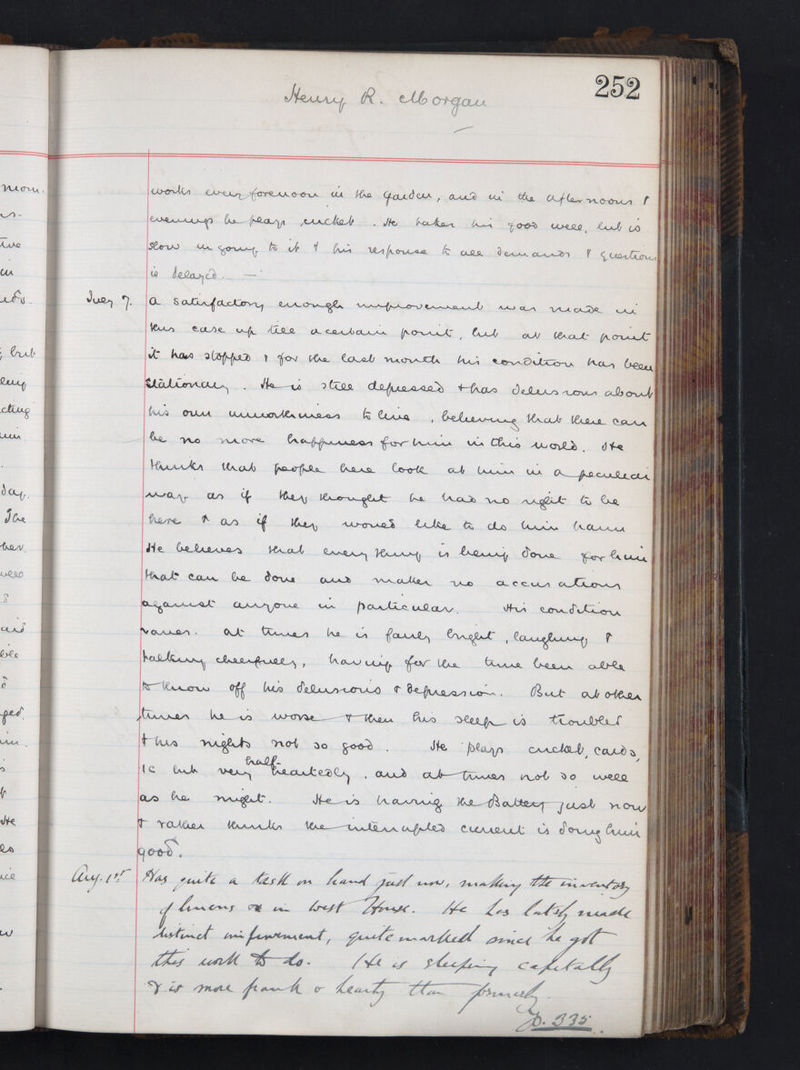 252
Henry R. Morgan
works every forenoon in the garden, and in the afternoons &
evenings he plays cricket. He takes his food well, but is
slow in going to it & his response to all demands & questions
is delayed. —
July 7. A satisfactory enough improvement was made in
this case up till a certain point, but at that point
it has stopped & for the last month his condition has been
stationary. He is still depressed & has delusions about
his own unworthiness to live, believing that there can
be no more happiness for him in this world. He
thinks that people here look at him in a peculiar
way as if they thought he had no right to be
here & as if they would like to do him harm
He believes that every thing is being done for him
that can be done and makes no accusations
against anyone in particular. His condition
varies. At times he is fairly bright, laughing &
talking cheerfully, having for the time been able
to throw off his delusions & depression. But at other
times he is worse & then his sleep is troubled
& his nights not so good. He plays cricket, cards,
&c but very half heartedly, and at times not so well
as he might. He is having the Battery just now
& rather thinks the interrupted current is doing him
good.
Aug. 1st Has quite a task on hand just now, making the inventory
of linens in West House. He has lately made
distinct improvement, quite marked since he got
this work to do. He is sleeping capitally
& is more frank & hearty than formerly.
p. 335.